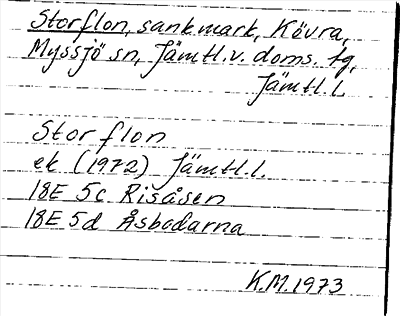 Storflon, sankmark, Kövra,
Myssjö sn, Jämtl.v. doms. tg,
Jämtl.l.
Storflon
ek (1972) Jämtl.l.
18E 5c Risåsen
18E 5d Åsbodarna
K.M.1973